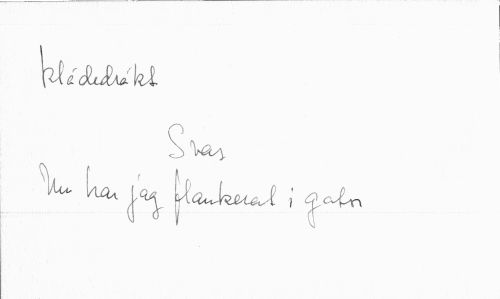 klädedräkt
Svar
Nu har jag flankerat i gator